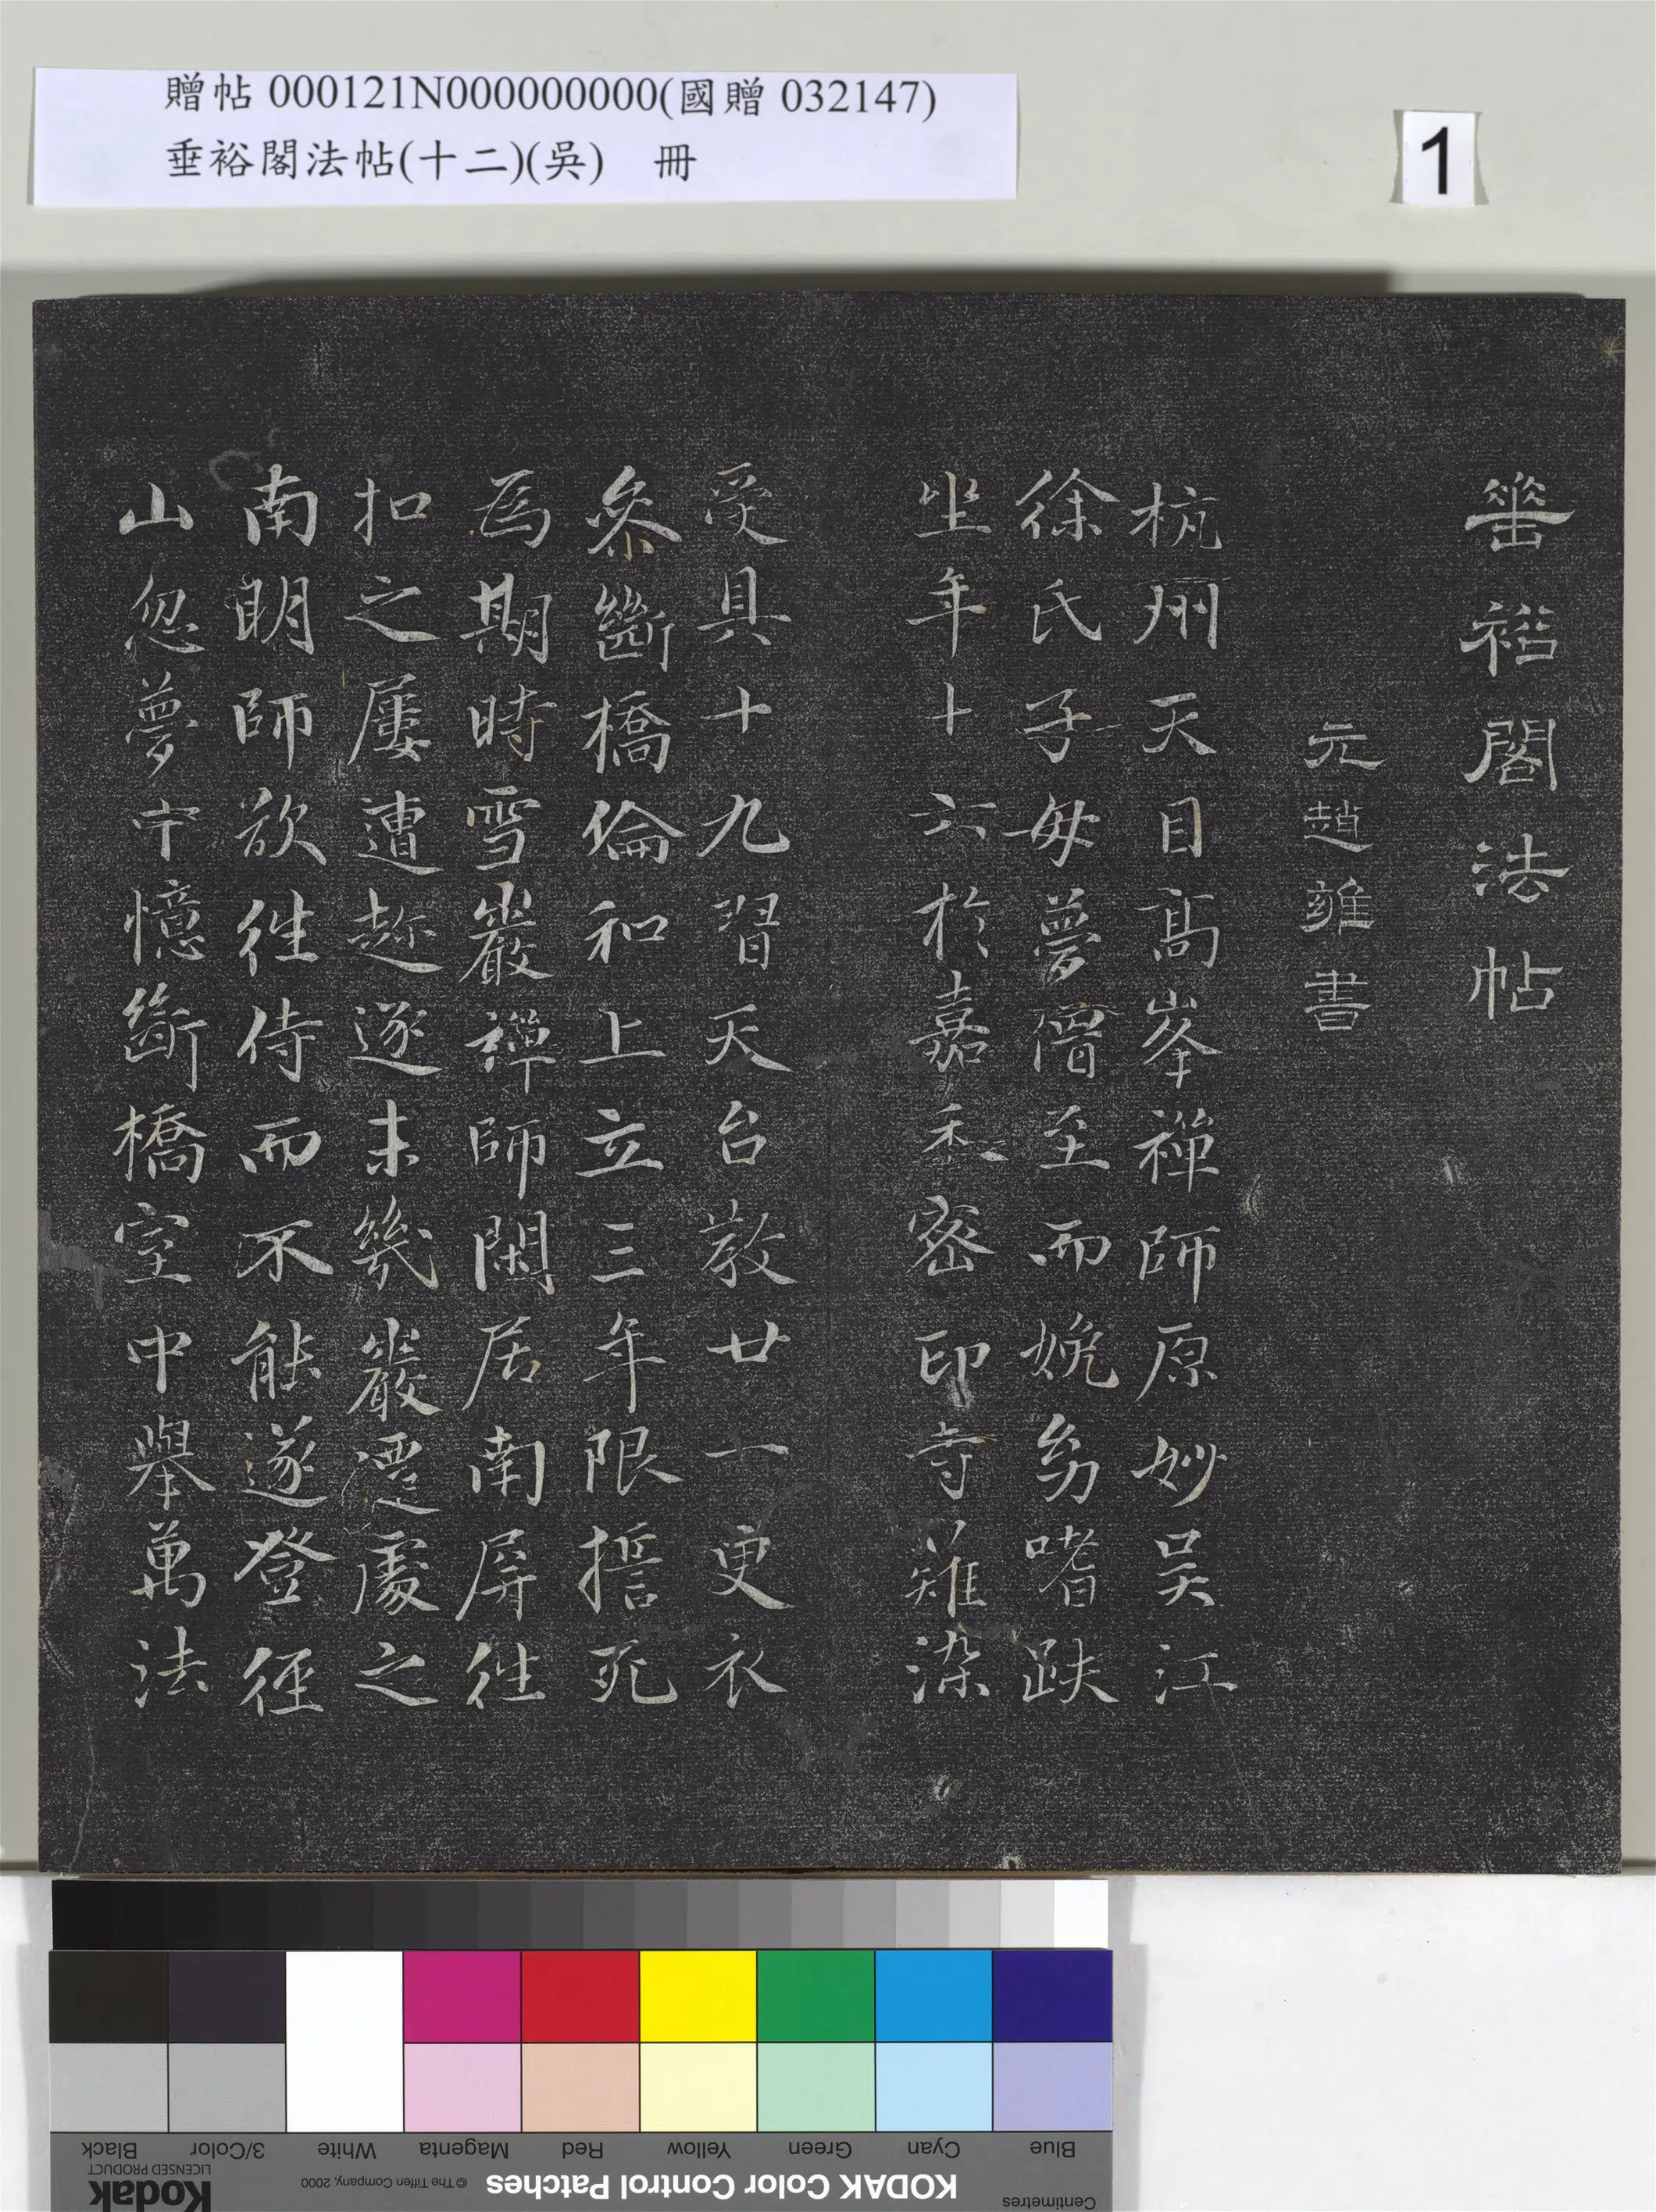 贈帖 000121N000000000(國贈 032147)
垂裕閣法帖(十二)(吳) 冊
1
垂裕閣法帖
元趙雍書
杭州天目高峯禪師原妙吳江
徐氏子母夢僧至而娩幼嗜趺
坐年十六於嘉禾密印寺薙染
受具十九習天台教廿一更衣
叅斷橋倫和上立三年限誓死
爲期時雪巖禪師閑居南屏往
扣之屢遭趂逐未幾巖遷處之
南明師欲往侍而不能遂登徑
山忽夢中憶斷橋室中舉萬法
Blue
Cyan
Green
Yellow
Red
Magenta
White
3/Color
Black
Centimetres
KODAK Color Control Patches
© The Tiffen Company, 2000
Kodak
LICENSED PRODUCT